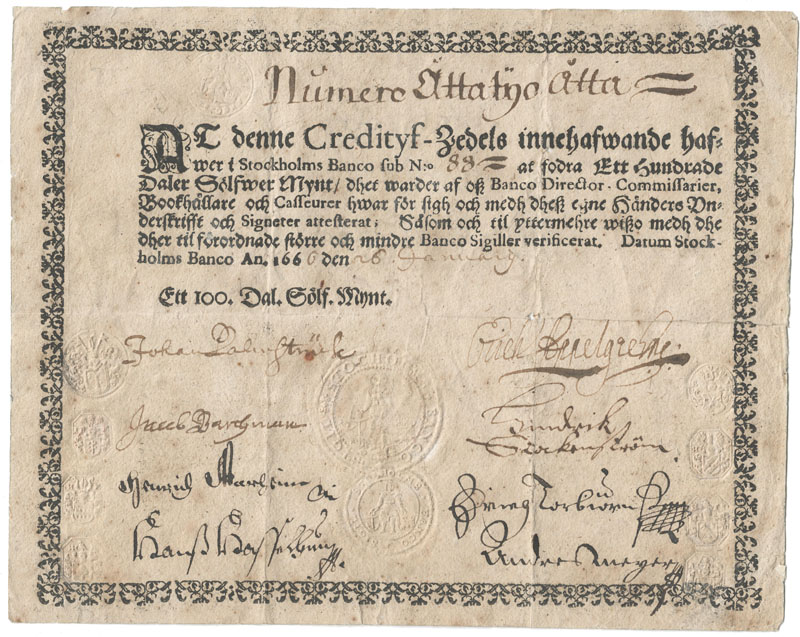 Numero Åttatijo Åtta
AT denne Credityf-Zedels innehafwande haf-
wer i Stockholms Banco sub N:o 88 at fodra Ett Hundrade
Daler Sölfwer Mynt/ dhet warder af oß Banco Director. Commissarier,
Bookhållare och Casseurer hwar för sigh och medh dheß egne Händers Vn-
derskrifft och Signeter attesterat; Såsom och til yttermehre wißo medh dhe
dher til förordnade större och mindre Banco Sigiller verificerat. Datum Stock-
holms Banco An. 1666 den 26 January.
Ett 100. Dal. Sölf. Mynt.
Johan Palmstruch
Erich Appelgrehn
Jacob Barchman
Hendrik
Stockenström.
Henrich
Torbiörn
Hanß
Andres Meyer